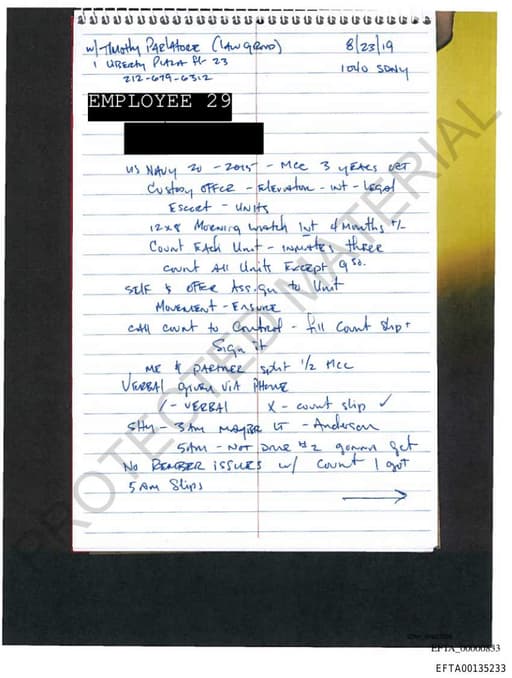 w/ Timothy Parlatore (Law Grno) 8/23/19
1 Liberty Plaza Fl- 23 1040 SDNY
212-679-6312
EMPLOYEE 29
US Navy 20 - 2015 - MCC 3 years Oct
Custody Officer - Elevator - Int - Legal
Escort - Units
12x8 Morning Watch Int 4 Months +/-
Count Each Unit - Inmates there
Count All Units Except 9 So.
Self & Ofer Assign to Unit
Movement - Ensure
Call Count to Control - fill Count Slip +
Sign it
Me & Partner split 1/2 MCC
Verbal given via Phone
/ - Verbal X - count slip ✓
SHU - 3AM Maybe LT - Anderson
5AM - Not Done #2 gonna get
No Remember issues w/ Count I got
5 AM Slips
PROTECTED MATERIAL
EFTA_00000833
EFTA00135233